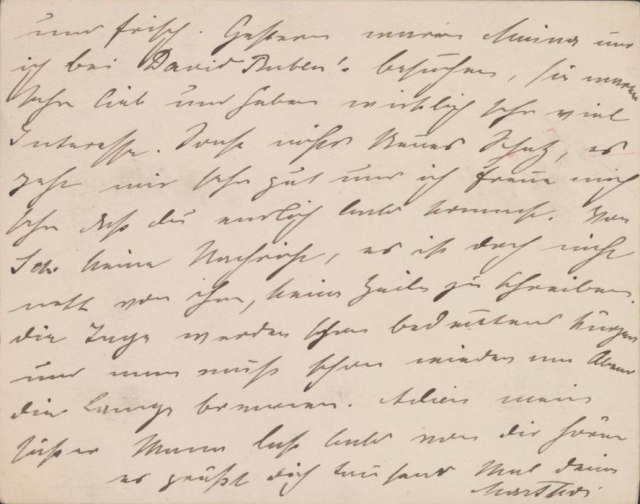 und frisch. Gestern waren Minna und
ich bei David Ruben's besuchen, sie waren
sehr lieb und haben wirklich sehr viel
Interesse. Sonst nichts Neues Schatz, es
geht mir sehr gut und ich freue mich
sehr daß du endlich bald kommst. Von
Sch. keine Nachricht, es ist doch nicht
nett von ihm, keine Zeile zu schreiben.
die Tage werden schon bedeutend kürzer
und man muß schon wieder am Abend
die Lampe brennen. Adieu mein
süßer Mann laß bald von dir hören
es grüßt dich tausend Mal deine